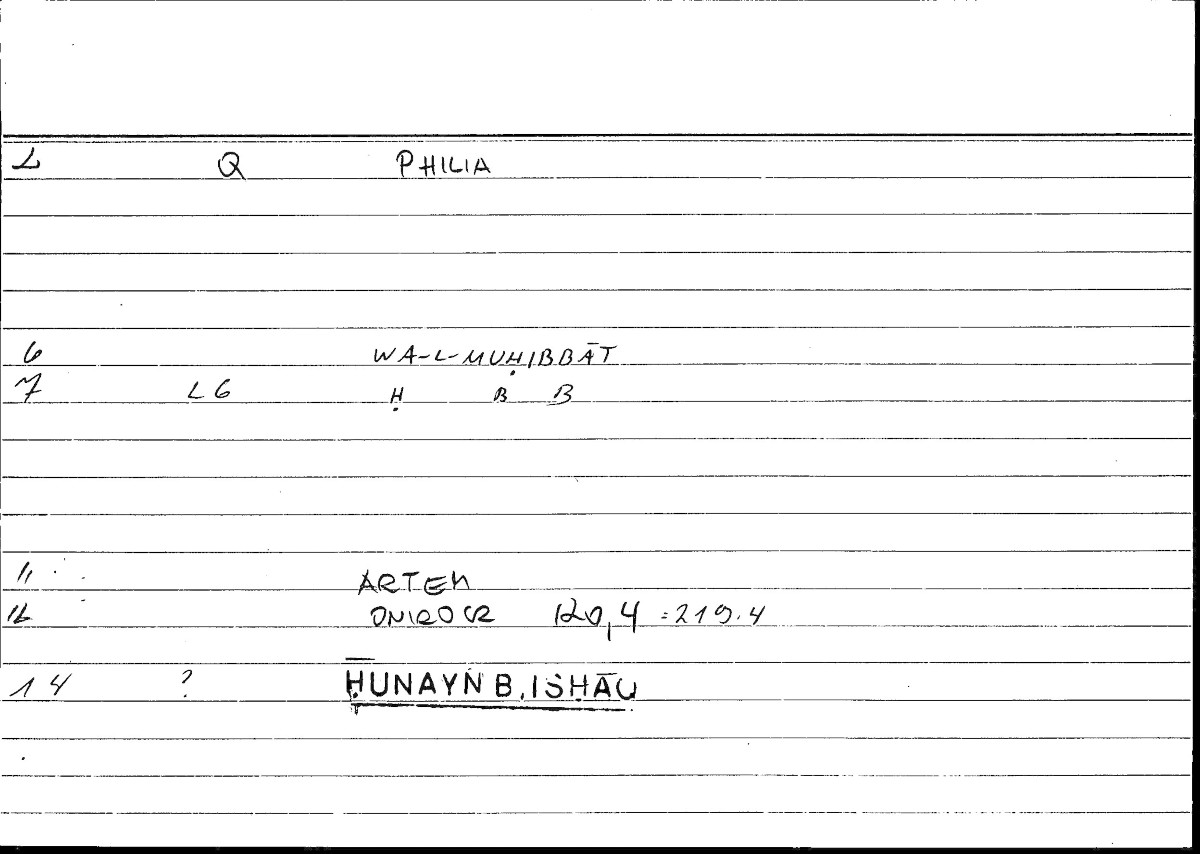 L Q PHILIA
6 WA-L-MUḤIBBĀT
7 L6 Ḥ B B
11 ARTEM
12 ONIROCR 120,4 =219.4
14 ? ḤUNAYN B. ISḤĀQ